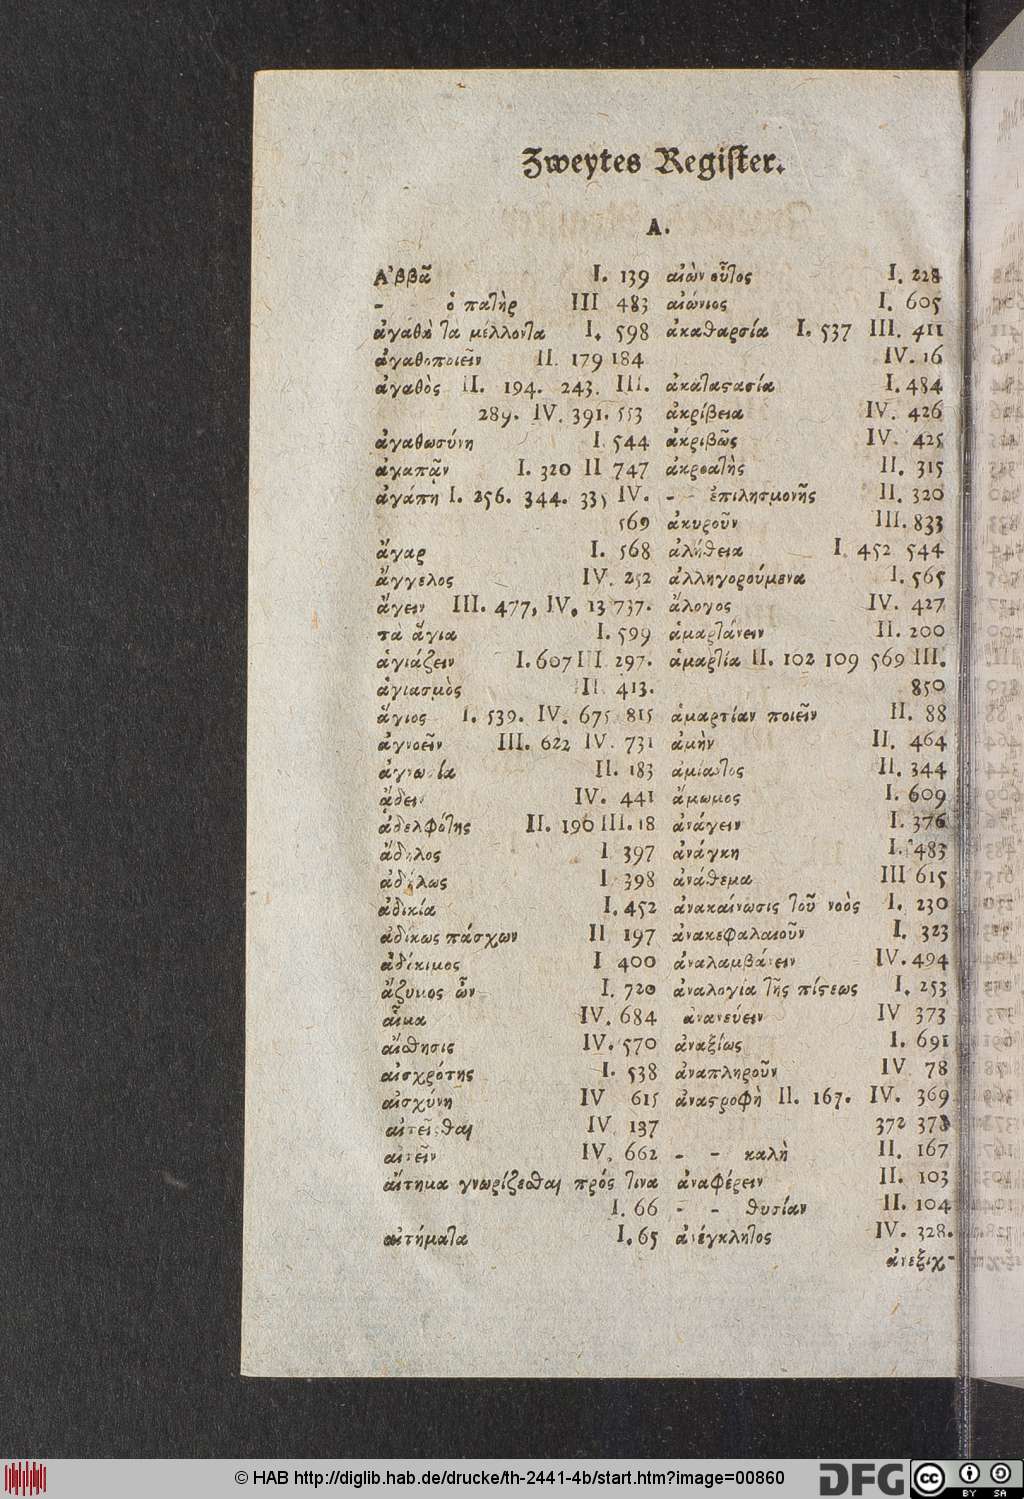 Zweytes Regiſter.
A.
Ἀββᾶ I. 139
- ὁ πατὴρ III 483
ἀγαθὰ τα μέλλοντα I. 598
ἀγαθοποιεῖν II. 179 184
ἀγαθὸς II. 194. 243. III.
289. IV. 391. 553
ἀγαθωσύνη I. 544
ἀγαπᾷν I. 320 II 747
ἀγάπη I. 256. 344. 335 IV.
569
ἄγαρ I. 568
ἄγγελος IV. 252
ἄγειν III. 477, IV. 13 737.
τὰ ἅγια I. 599
ἁγιάζειν I. 607 III. 297.
ἁγιασμὸς II 413.
ἅγιος I. 539. IV. 675 815
ἀγνοεῖν III. 622 IV. 731
ἀγνωσία II. 183
ᾄδειν IV. 441
ἀδελφότης II. 190 III. 18
ἄδηλος I 397
ἀδήλως I 398
ἀδικία I. 452
ἀδίκως πάσχων II 197
ἀδόκιμος I 400
ἄζυμος ὢν I. 720
αἷμα IV. 684
αἴσθησις IV. 570
αἰσχρότης I. 538
αἰσχύνη IV 615
αἰτεῖσθαι IV 137
αἰτεῖν IV. 662
αἴτημα γνωρίζεσθαι πρός τινα
I. 66
αἰτήματα I. 65
αἰὼν οὗτος I. 228
αἰώνιος I. 605
ἀκαθαρσία I. 537 III. 411
IV. 16
ἀκαταστασία I. 484
ἀκρίβεια IV. 426
ἀκριβῶς IV. 425
ἀκροατὴς II. 315
- - ἐπιλησμονῆς II. 320
ἀκυροῦν III. 833
ἀλήθεια I. 452 544
ἀλληγορούμενα I. 565
ἄλογος IV. 427
ἁμαρτάνειν II. 200
ἁμαρτία II. 102 109 569 III.
850
ἁμαρτίαν ποιεῖν II. 88
ἀμὴν II. 464
ἀμίαντος II. 344
ἄμωμος I. 609
ἀνάγειν I. 376
ἀνάγκη I. 483
ἀνάθεμα III 615
ἀνακαίνωσις τοῦ νοὸς I. 230
ἀνακεφαλαιοῦν I. 323
ἀναλαμβάνειν IV. 494
ἀναλογία τῆς πίστεως I. 253
ἀνανεύειν IV 373
ἀναξίως I. 691
ἀναπληροῦν IV 78
ἀναστροφὴ II. 167. IV. 369
372 378
- - καλὴ II. 167
ἀναφέρειν II. 103
- - θυσίαν II. 104
ἀνέγκλητος IV. 328.
ἀνεξιχ-
© HAB http://diglib.hab.de/drucke/th-2441-4b/start.htm?image=00860
DFG
cc
BY SA